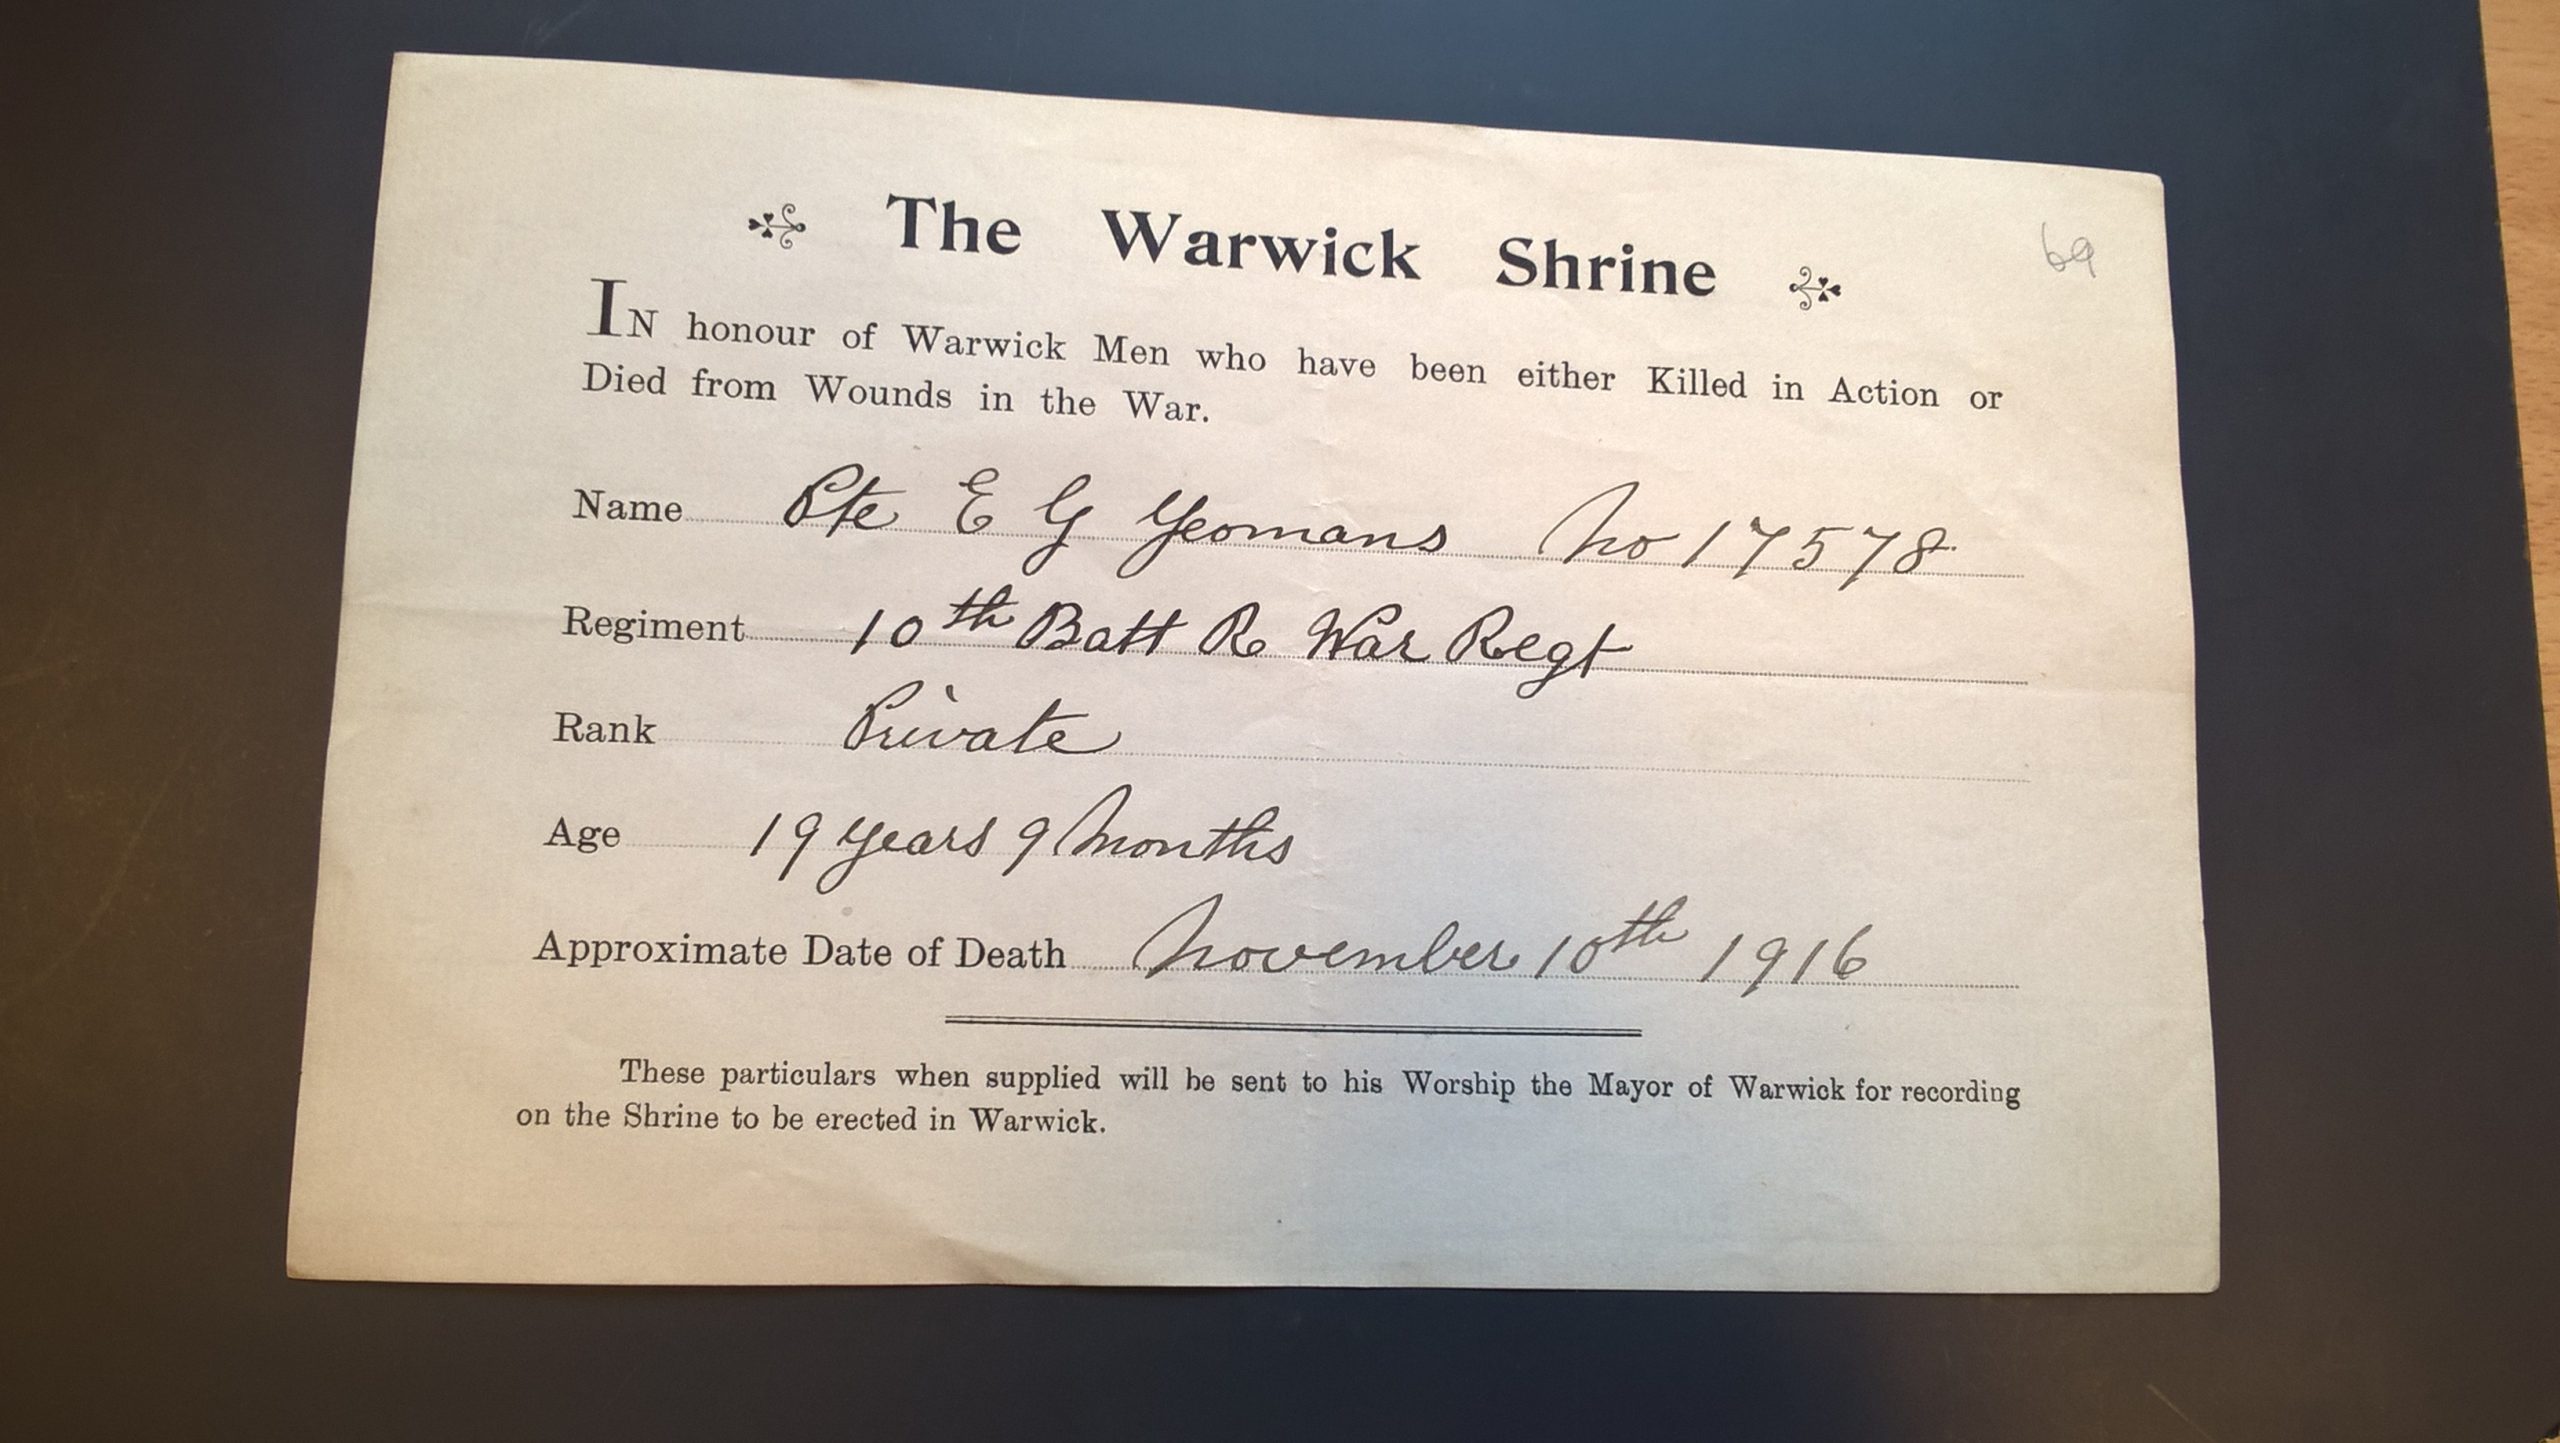 The Warwick Shrine
69
IN honour of Warwick Men who have been either Killed in Action or
Died from Wounds in the War.
Name Pte E G Yeomans No 17578
Regiment 10th Batt R War Regt
Rank Private
Age 19 years 9 Months
Approximate Date of Death November 10th 1916
These particulars when supplied will be sent to his Worship the Mayor of Warwick for recording
on the Shrine to be erected in Warwick.